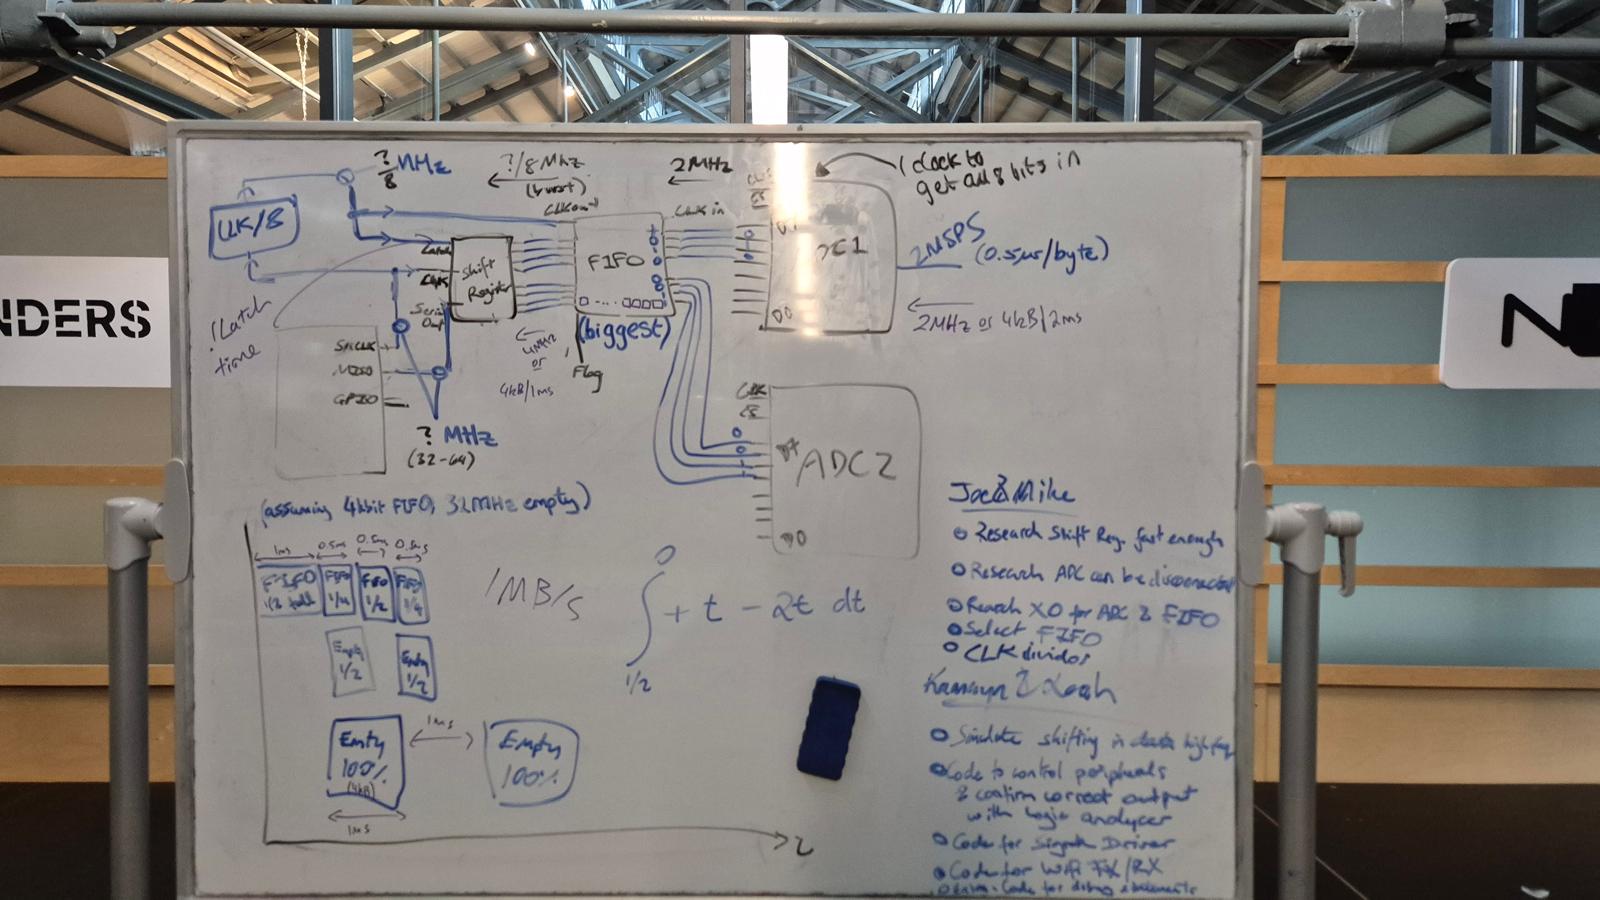 ?/8 MHz
?/8 Mhz
(burst)
2MHz
1 clock to
get all 8 bits in
CLK/8
CLK out
CLK in
CLK
CS
D7
Latch
CLK
Serial
Out
Shift
Register
FIFO
(biggest)
Flag
4MHz
or
4kB/1ms
2MSPS (0.5µs/byte)
2MHz or 4kB/2ms
D0
NDERS
N
1 Latch
time
SPICLK
MISO
GPIO
? MHz
(32-64)
CLK
CS
D7
ADC2
D0
(assuming 4kbit FIFO, 32MHz empty)
1ms
0.5ms
0.5ms
0.5ms
FIFO
1/2 full
FIFO
1/4
FIFO
1/2
FIFO
1/4
Empty
1/2
Empty
1/2
1MB/s
0
∫ + t - 2t dt
1/2
Empty
100%
(4kB)
1ms
Empty
100%
1ms
Joe & Mike
Research Shift Reg. fast enough
Research ADC can be disconnected
Research XO for ADC & FIFO
Select FIFO
CLK divider
Simulate shifting in data high freq
Code to control peripherals
& confirm correct output
with logic analyzer
Code for Driver
Code for WiFi TX/RX
Code for debug statements